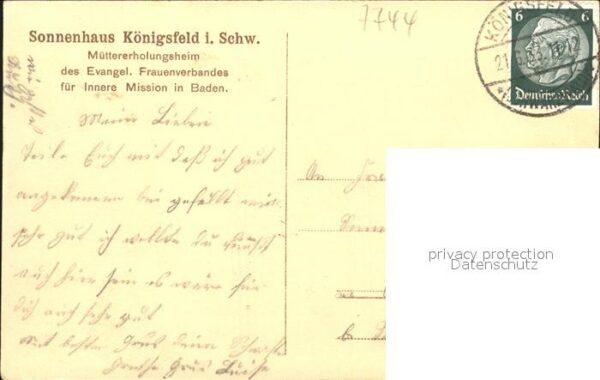 7744
Sonnenhaus Königsfeld i. Schw.
Müttererholungsheim
des Evangel. Frauenverbandes
für Innere Mission in Baden.
KÖNIGSFELD
21.6.
6 6
Deutsches Reich
Meine Lieben
Teile Euch mit daß ich gut
angekommen bin gefällt mir
sehr gut ich wollte du
auch hier sein es wäre für
dich auch sehr gut
mit besten Grus deine
Grus Luise
An
privacy protection
Datenschutz